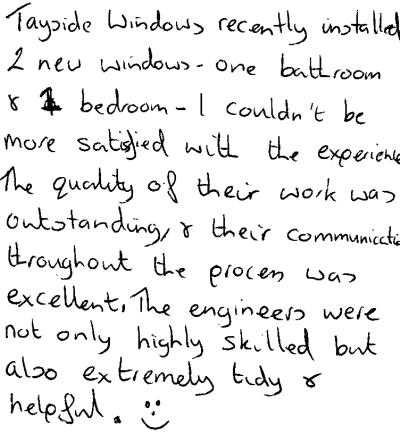 Tayside Windows recently installed
2 new windows - one bathroom
& 1 bedroom - I couldn't be
more satisfied with the experience
The quality of their work was
outstanding, & their communicatio
throughout the process was
excellent. The engineers were
not only highly skilled but
also extremely tidy &
helpful. :)